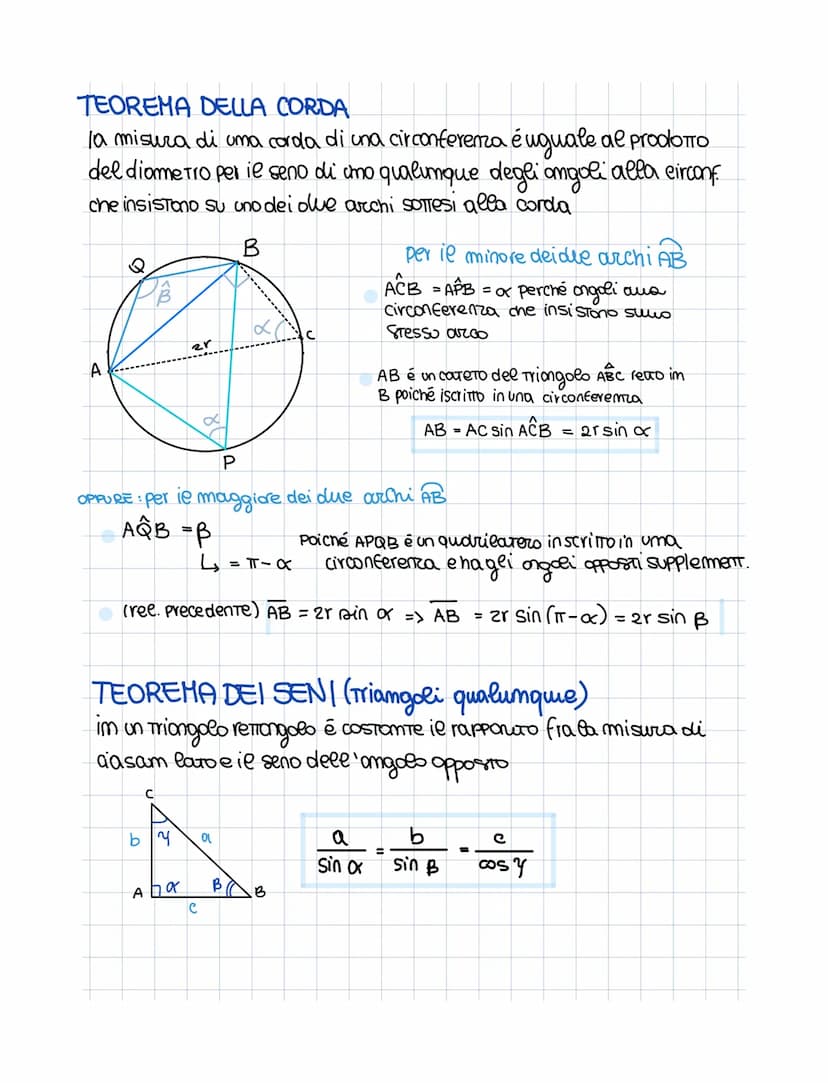 TEOREMA DELLA CORDA
la misura di una corda di una circonferenza é uguale al prodotto
del diametro per il seno di uno qualunque degli angoli alla circonf.
che insistono su uno dei due archi sottesi alla corda
B
Q
β̂
α
C
2r
A
α
P
per il minore dei due archi A͡B
AĈB = AP̂B = α perché angoli alla
circonferenza che insistono sullo
stesso arco
AB é un cateto del triangolo AB̂C retto in
B poiché iscritto in una circonferenza
AB = AC sin AĈB = 2r sin α
OPPURE : per il maggiore dei due archi A͡B
AQ̂B = β
↳ = π - α
Poiché APQB é un quadrilatero inscritto in una
circonferenza e ha gli angoli opposti supplement.
(rel. precedente) A̅B̅ = 2r sin α => A̅B̅ = 2r sin (π-α) = 2r sin β
TEOREMA DEI SENI (Triangoli qualunque)
in un triangolo rettangolo é costante il rapporto fra la misura di
ciascun lato e il seno dell'angolo opposto
C
b γ a
A α β B
c
a/sin α = b/sin β = c/cos γ